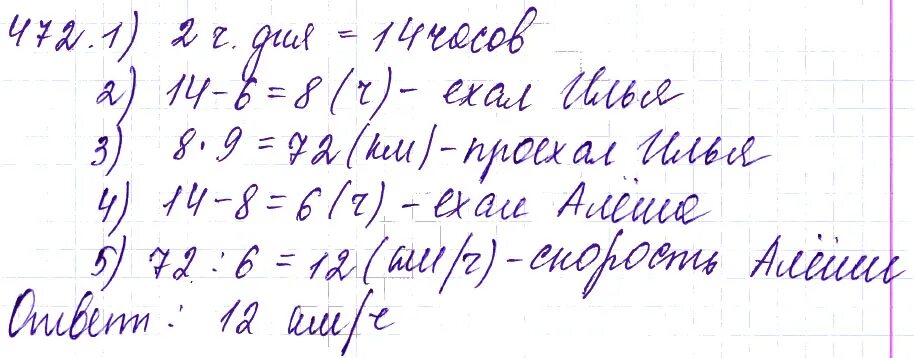 472. 1) 2 ч. дня = 14 часов
2) 14 - 6 = 8 (ч) - ехал Илья
3) 8 · 9 = 72 (км) - проехал Илья
4) 14 - 8 = 6 (ч) - ехал Алёша
5) 72 : 6 = 12 (км/ч) - скорость Алёши
Ответ: 12 км/ч